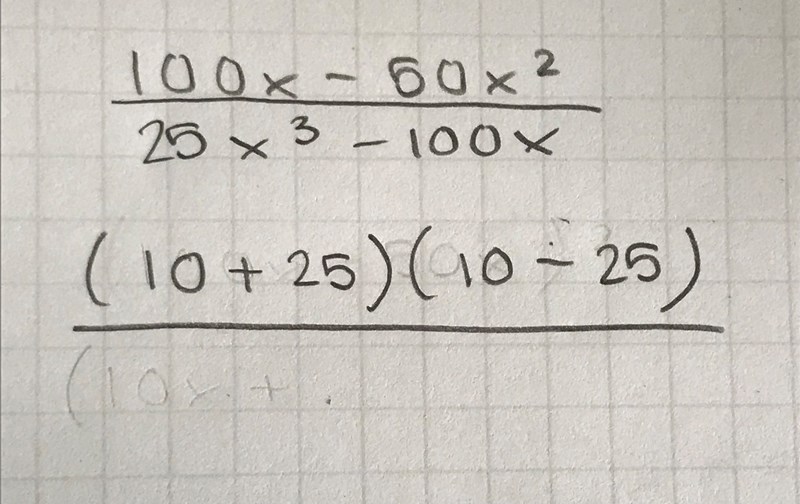 100x - 50x²
25x³ - 100x
(10 + 25)(10 - 25)
(10x +